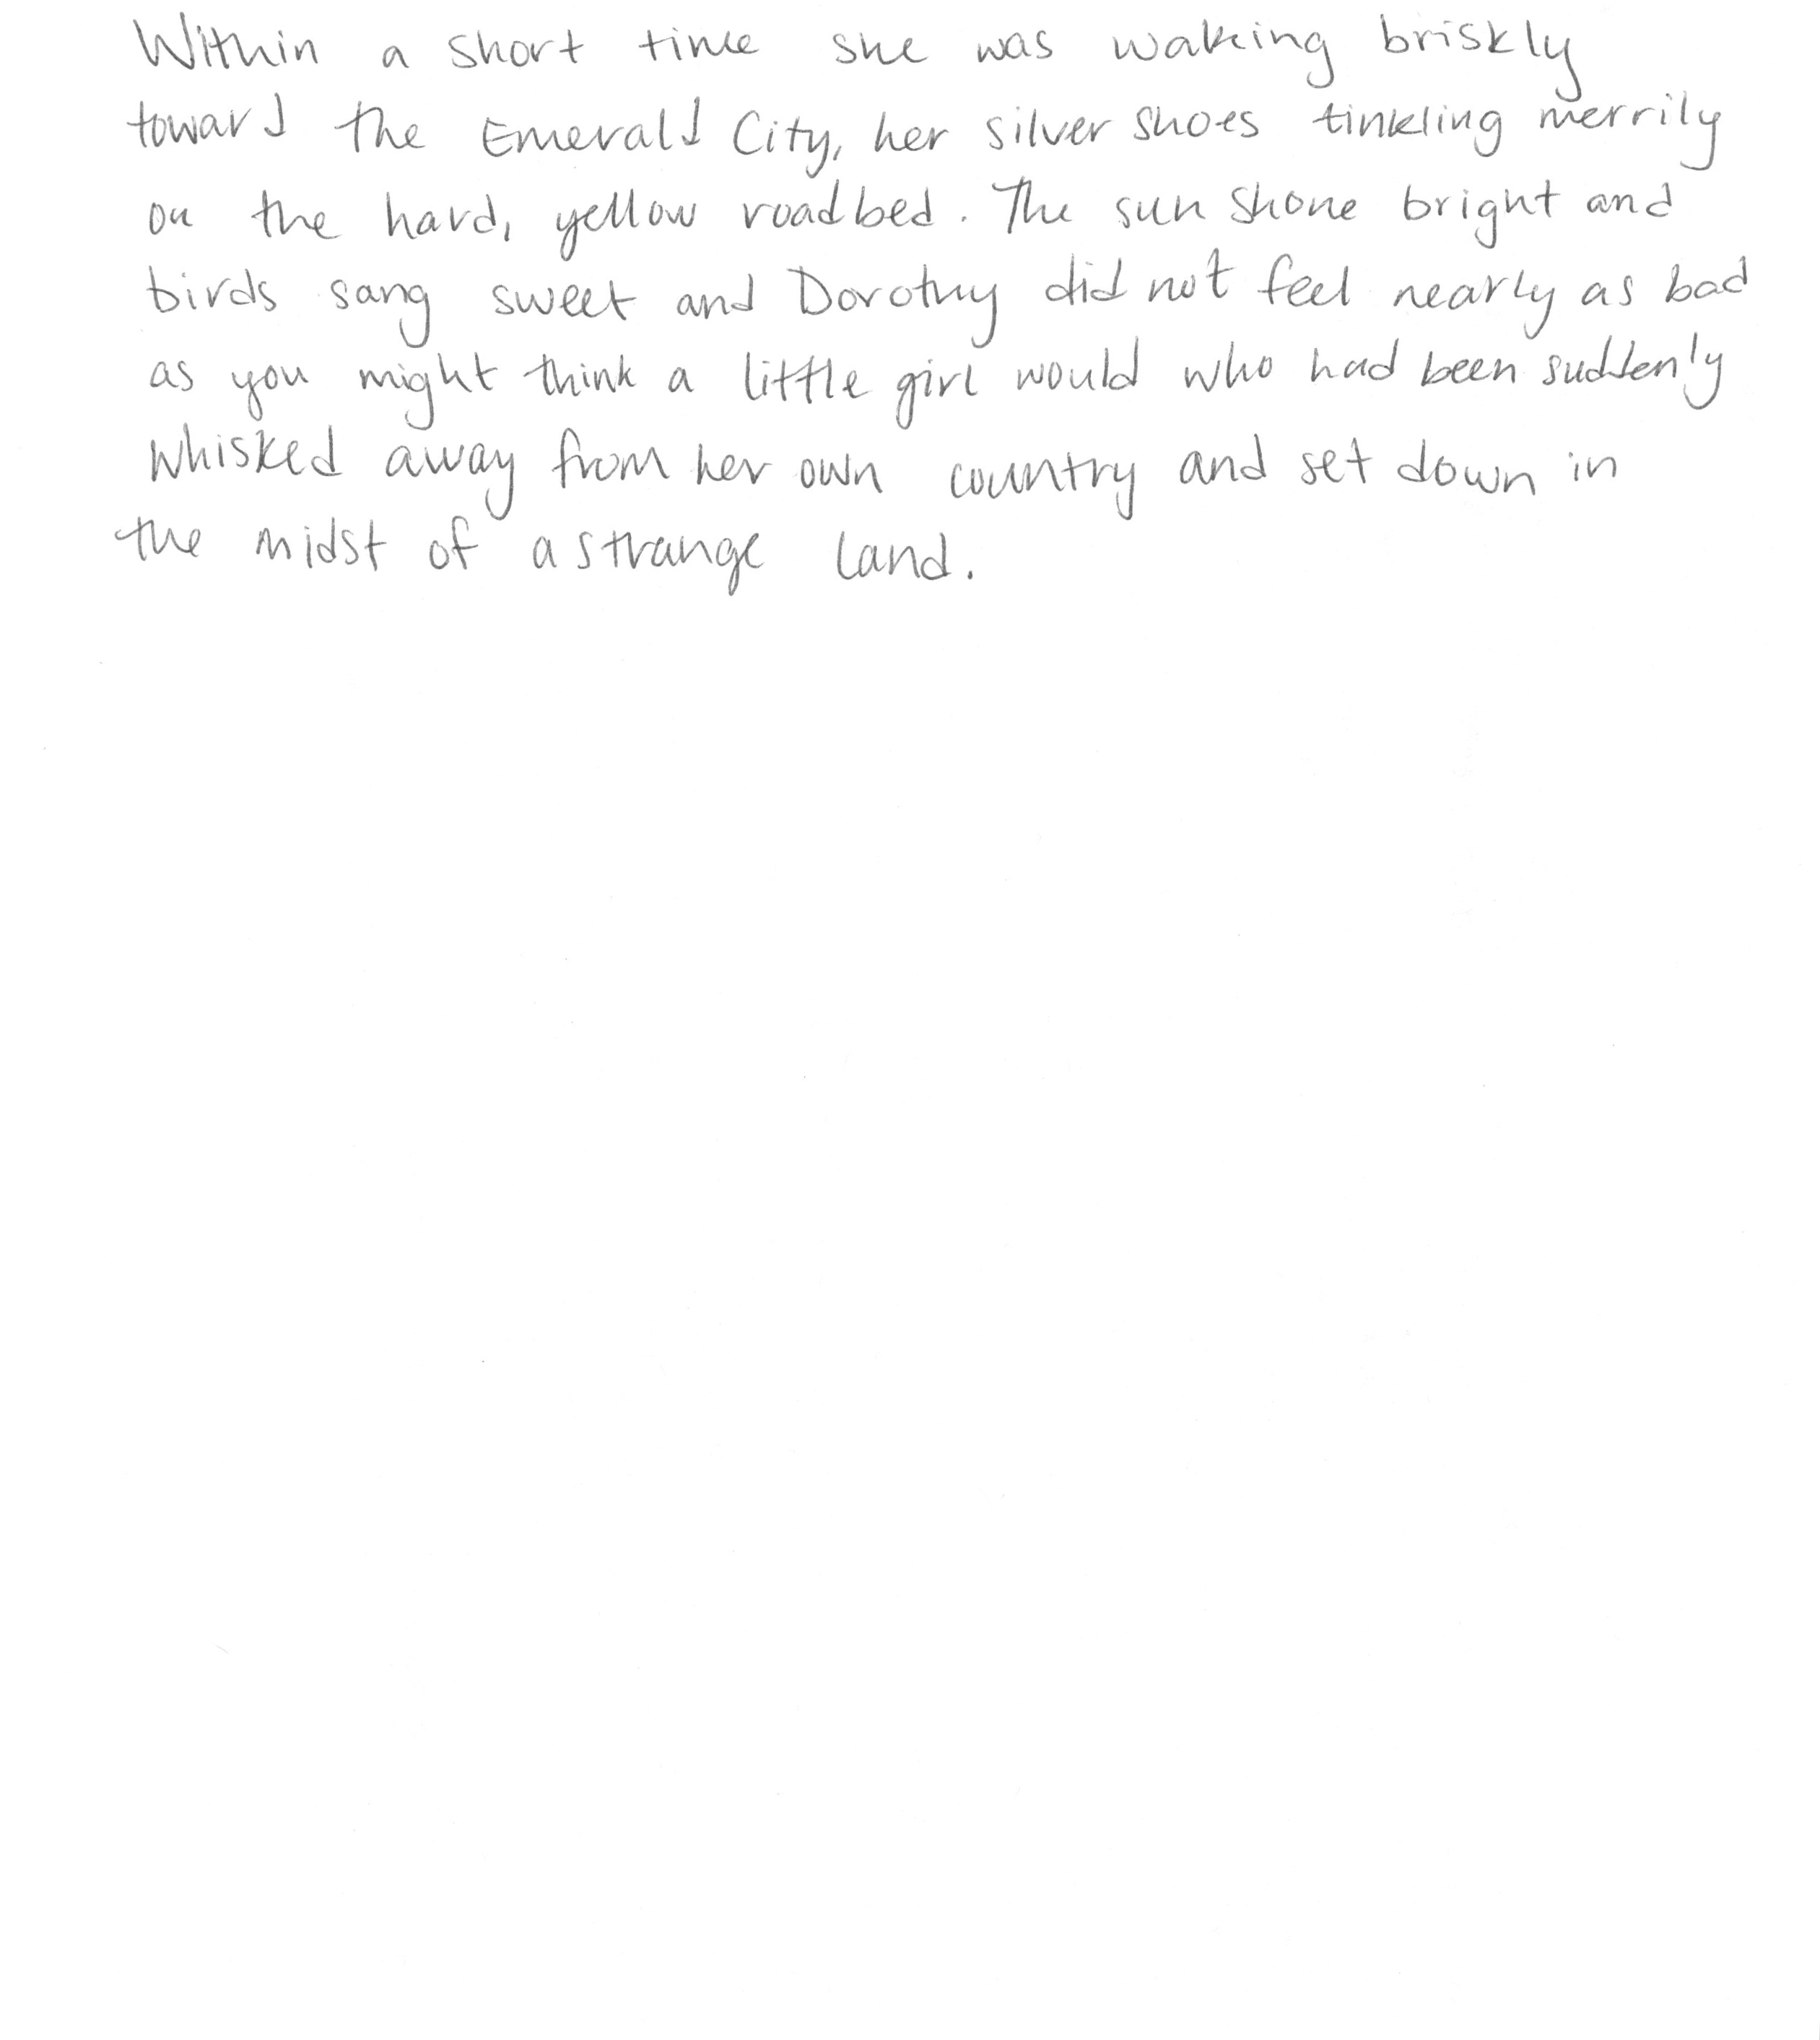 Within a short time she was walking briskly
toward the Emerald City, her silver shoes tinkling merrily
on the hard, yellow roadbed. The sun shone bright and
birds sang sweet and Dorothy did not feel nearly as bad
as you might think a little girl would who had been suddenly
whisked away from her own country and set down in
the midst of a strange land.